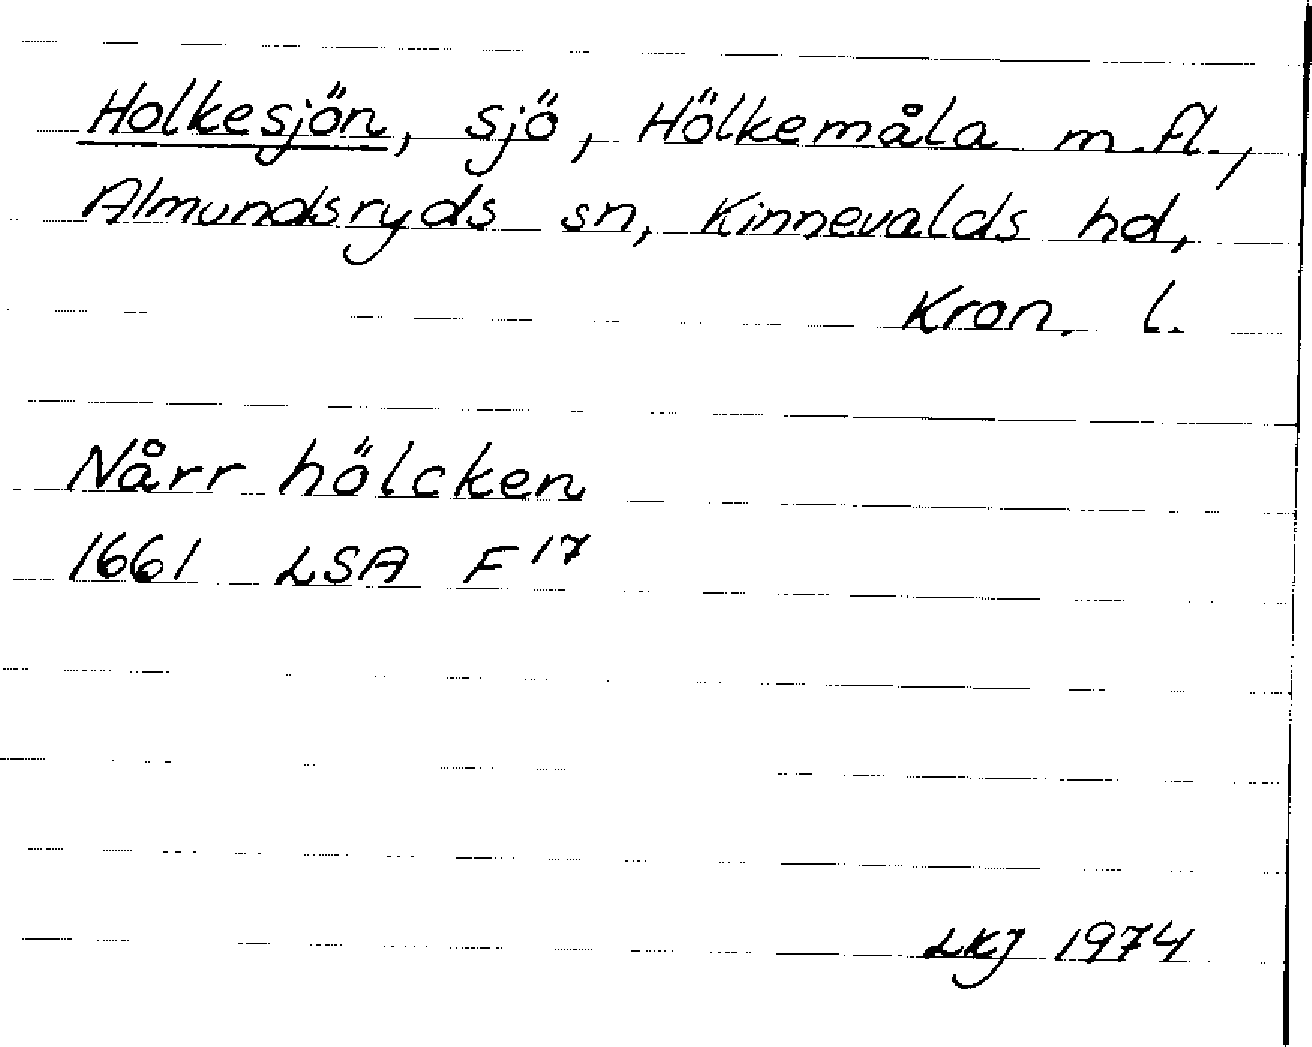 Holkesjön, sjö, Hölkemåla m.fl.,
Almundsryds sn, Kinnevalds hd,
Kron. l.
Nårr hölcken
1661 LSA F 17
LKJ 1974